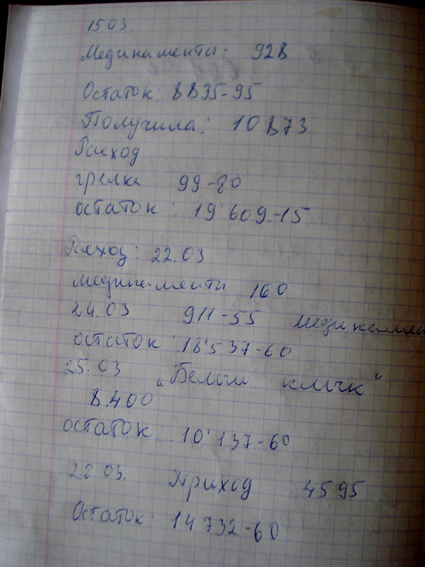 15 03.
Медикаменты: 928
Остаток: 8835-95
Получила: 10873
Расход
грелка 99-80
остаток: 19'609-15
Расход: 22.03
медика-менты 160
24.03 911-55 медикамен
остаток: 18'537-60
25.03 "Белый клык"
8.400
остаток: 10'137-60
28.03. Приход 4595
Остаток: 14'732-60